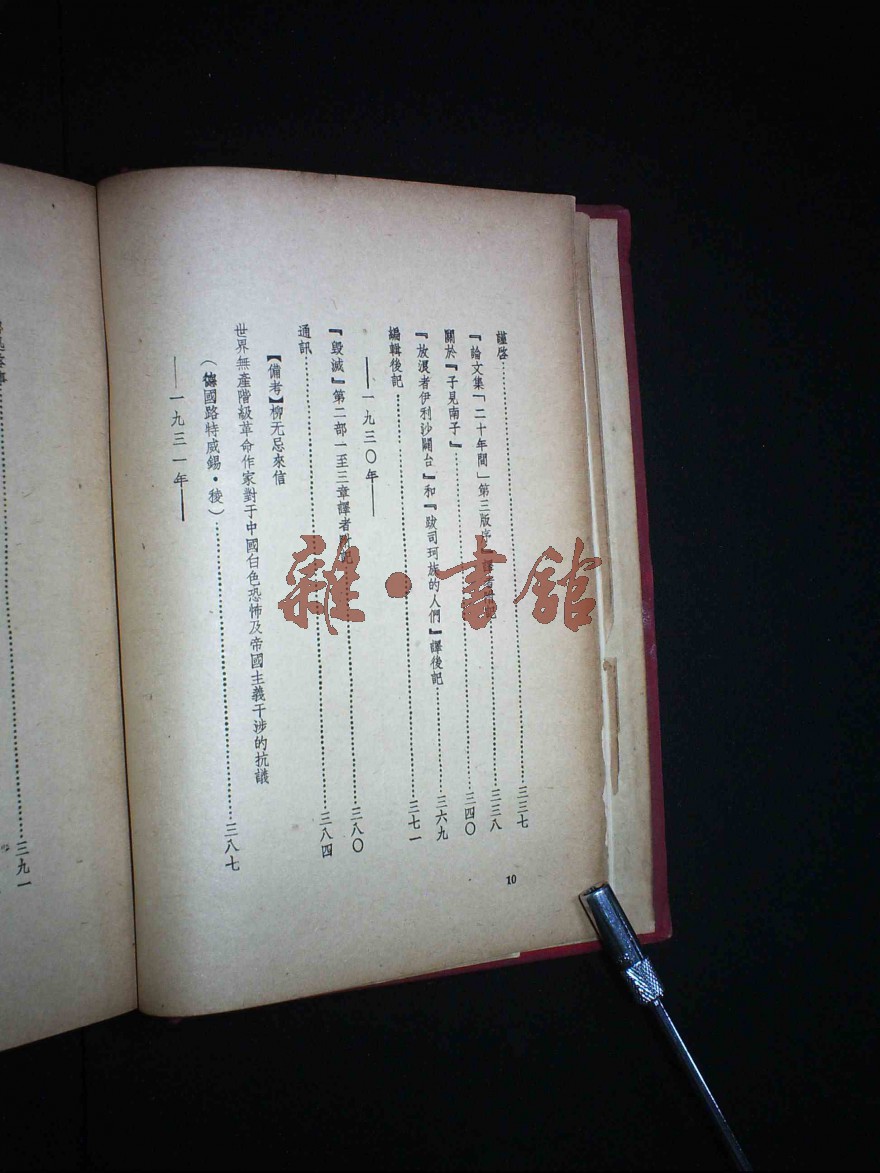 謹啓……三三七
『論文集「二十年間」第三版序』譯者附記……三三八
關於『子見南子』……三四〇
『放浪者伊利沙闢台』和『跋司珂族的人們』譯後記……三六九
編輯後記……三七一
——一九三〇年——
『毀滅』第二部一至三章譯者附記……三八〇
通訊……三八四
【備考】柳无忌來信
世界無產階級革命作家對于中國白色恐怖及帝國主義干涉的抗議
（德國路特威錫·稜）……三八七
——一九三一年——
10
……三九一
雜·書館